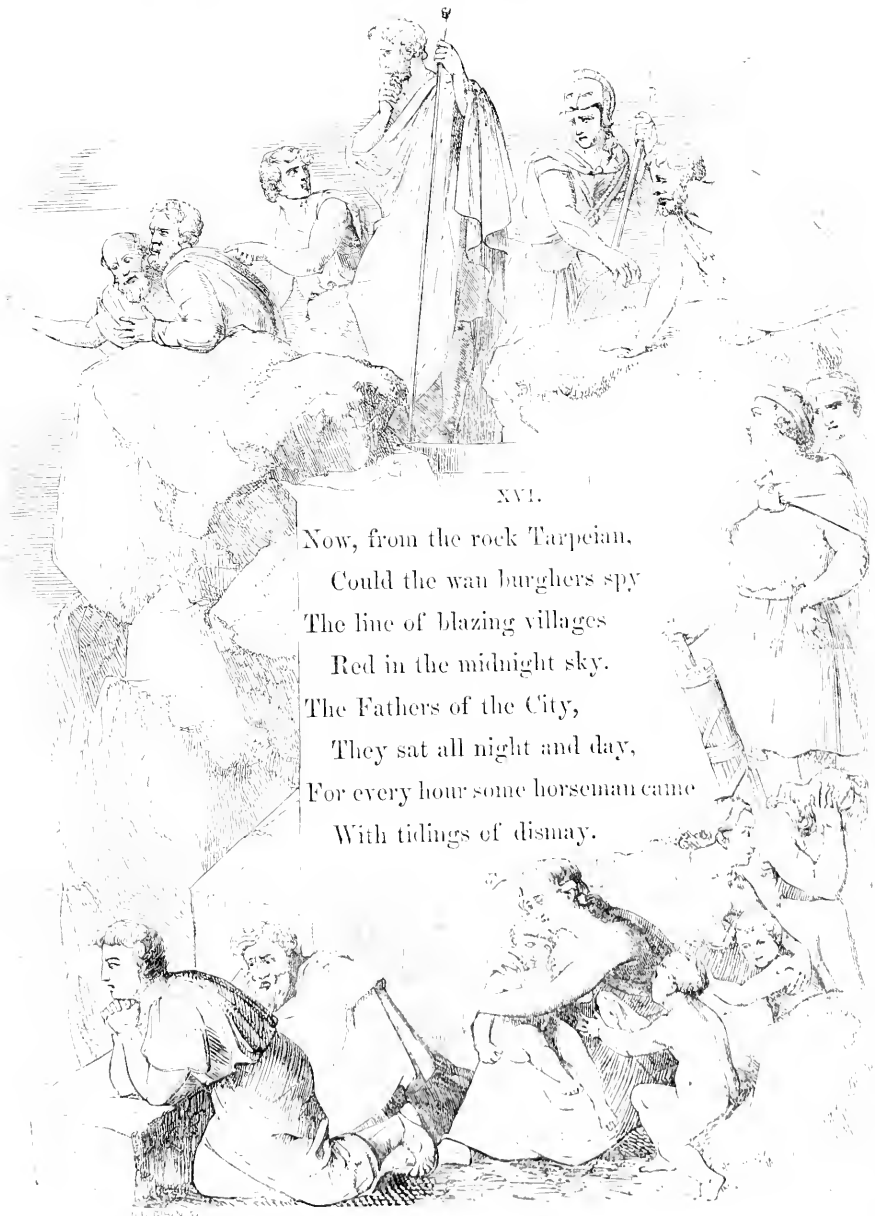 XVI.
Now, from the rock Tarpeian,
Could the wan burghers spy
The line of blazing villages
Red in the midnight sky.
The Fathers of the City,
They sat all night and day,
For every hour some horseman came
With tidings of dismay.